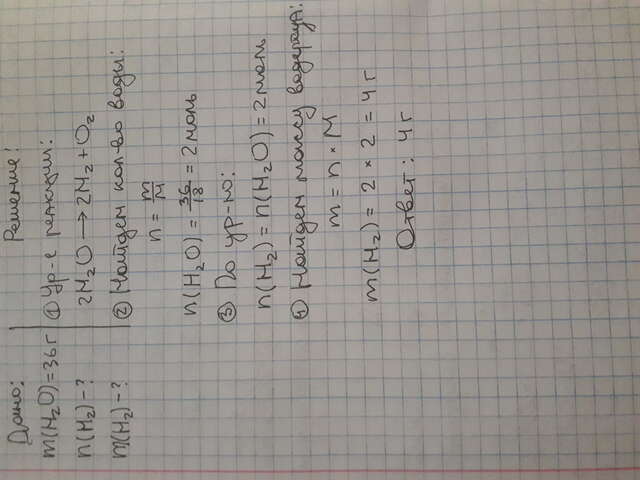 Дано:
m(H₂O)=36г
n(H₂)-?
m(H₂)-?
Решение:
① Ур-е реакции:
2H₂O → 2H₂ + O₂
② Найдем кол-во воды:
n = m/M
n(H₂O) = 36/18 = 2 моль
③ По ур-ю:
n(H₂) = n(H₂O) = 2 моль
④ Найдем массу водорода:
m = n × M
m(H₂) = 2 × 2 = 4 г
Ответ: 4 г